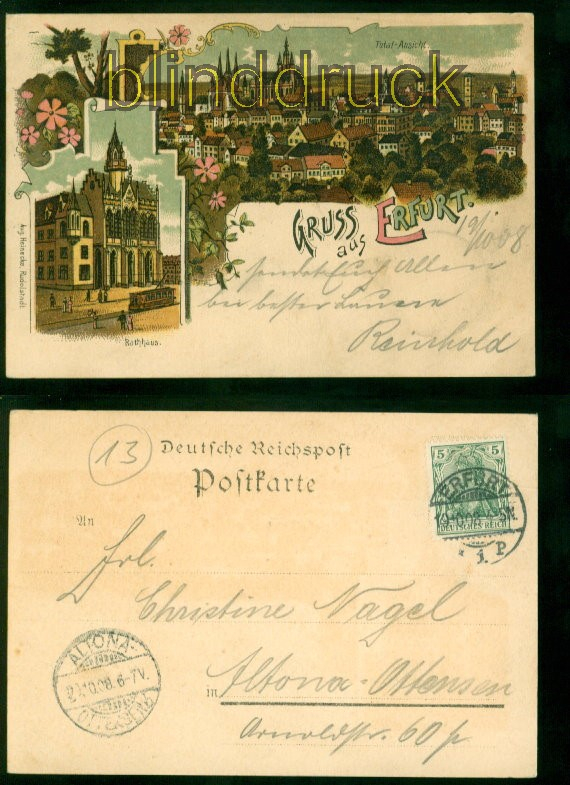 Total-Ansicht.
blinddruck
GRUSS
aus
ERFURT.
19/10 08
sendet Euch Allen
bei bester Laune
Reinhold
Aug. Heinecke, Rudolstadt
Rathhaus.
13
Deutsche Reichspost
Postkarte
5 5
DEUTSCHES REICH
ERFURT
* 1. P
An
Frl.
Christine Nagel
in Altona-Ottensen
Arnoldstr. 60 p
ALTONA-
20.10.08. 6-7V.
OTTENSEN